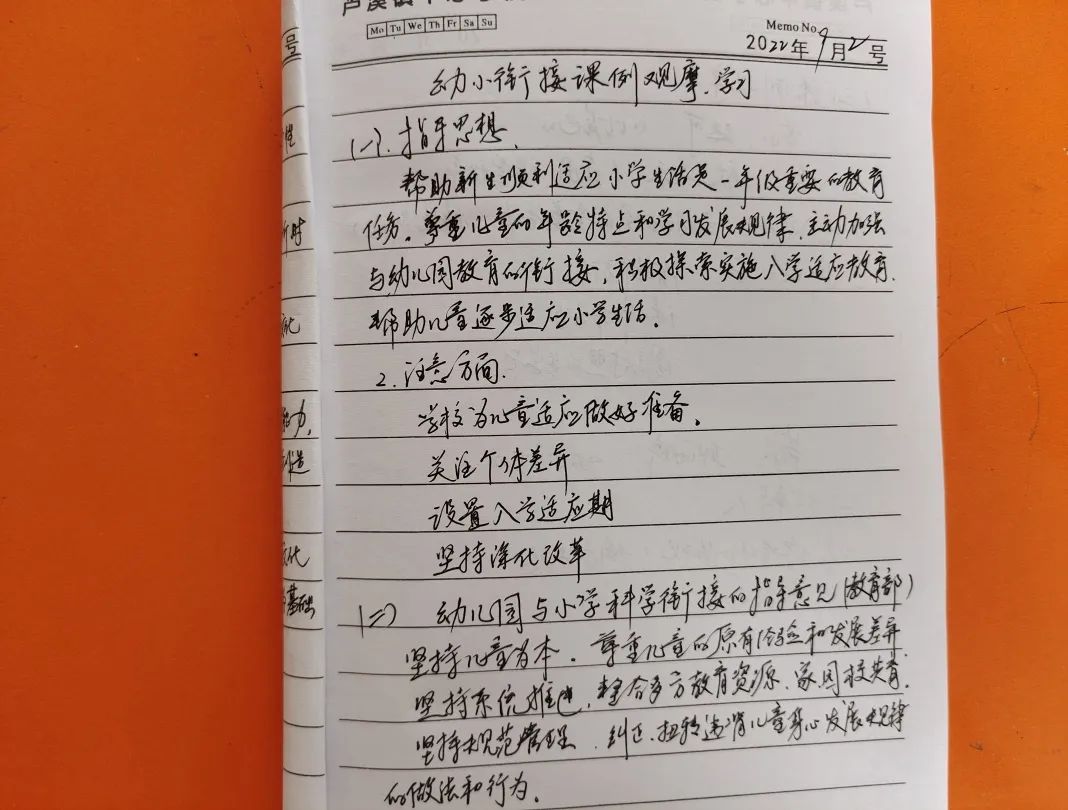 Mo Tu We Th Fr Sa Su
Memo No.
2022年9月2号
幼小衔接课例观摩.学习
(一).指导思想.
帮助新生顺利适应小学生活是一年级重要的教育
任务。尊重儿童的年龄特点和学习发展规律.主动加强
与幼儿园教育的衔接,积极探索实施入学适应教育.
帮助儿童逐步适应小学生活.
2.注意方面.
学校为儿童适应做好准备.
关注个体差异
设置入学适应期
坚持深化改革
(二) 幼儿园与小学科学衔接的指导意见(教育部)
坚持儿童为本.尊重儿童的原有经验和发展差异
坚持系统推进,整合多方教育资源.家园校共育.
坚持规范管理.纠正.扭转违背儿童身心发展规律
的做法和行为.
号
性
时
化
力.
造
化
基础